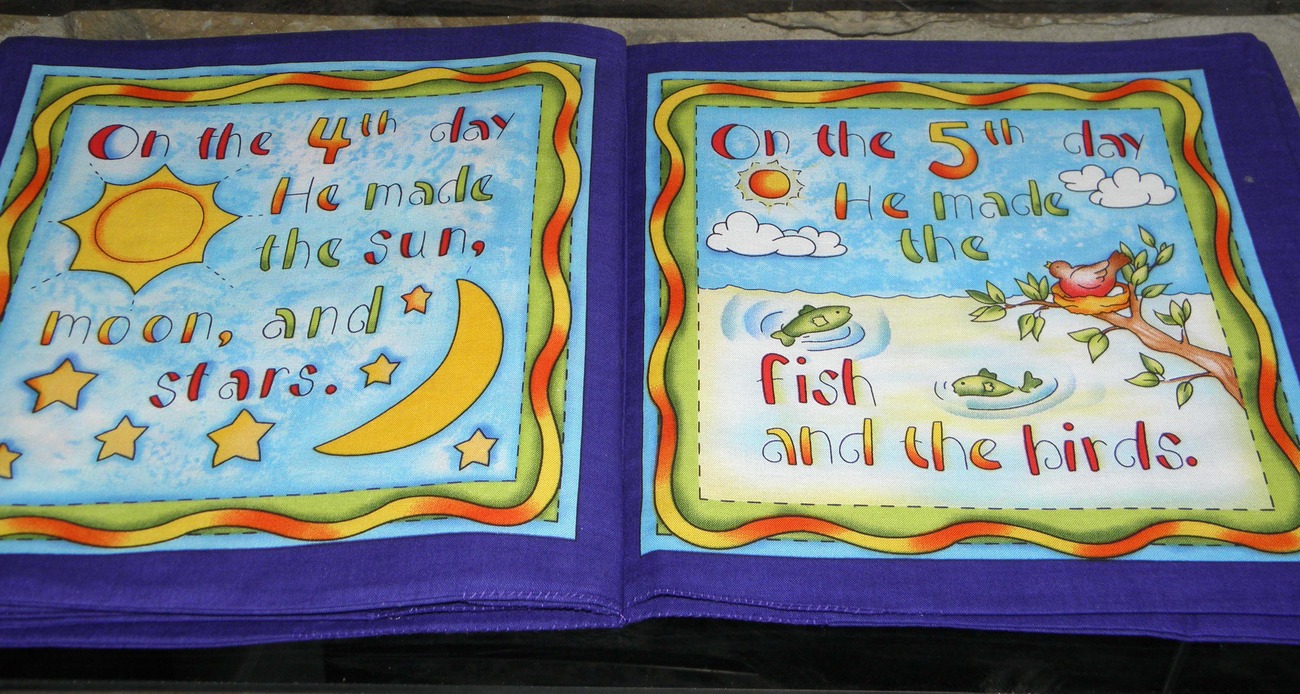 On the 4th day
He made
the sun,
moon, and
stars.
On the 5th day
He made
the
fish
and the birds.